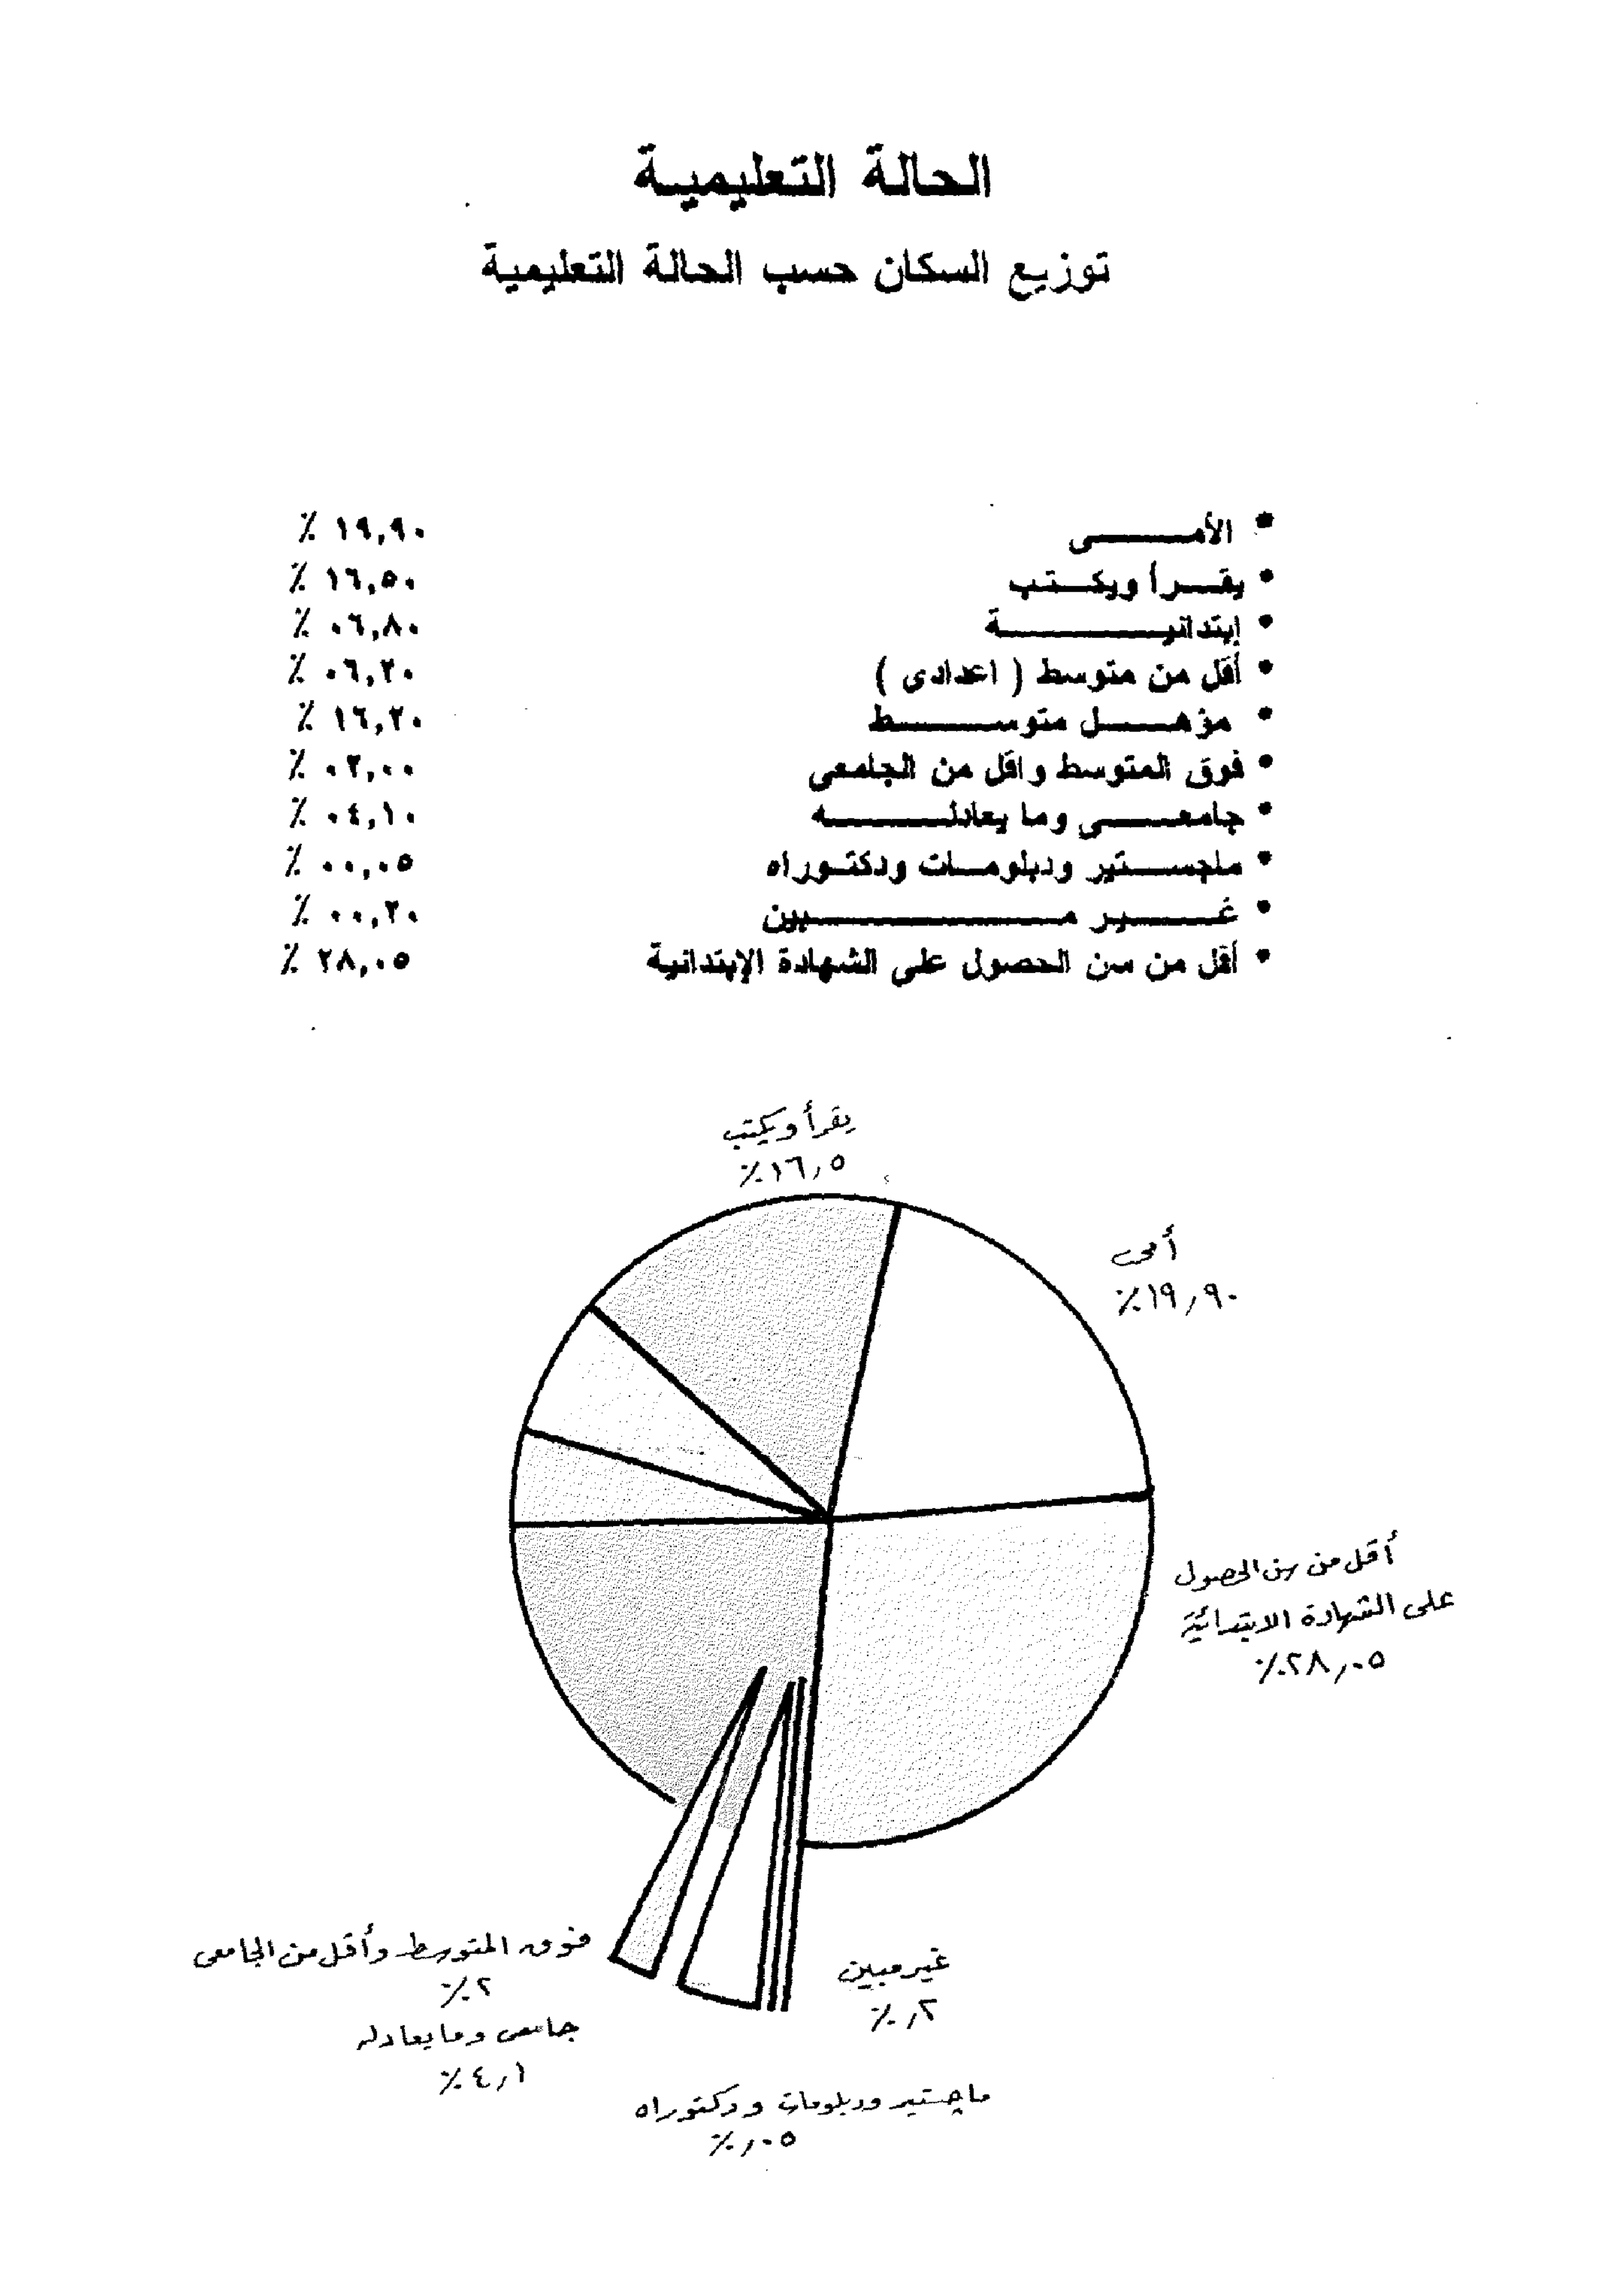 الحالة التعليمية
توزيع السكان حسب الحالة التعليمية
* الأمى ١٩,٩٠ ٪
* يقرأ ويكتب ١٦,٥٠ ٪
* إبتدائية ٠٦,٨٠ ٪
* أقل من متوسط ( اعدادى ) ٠٦,٢٠ ٪
* مؤهل متوسط ١٦,٢٠ ٪
* فوق المتوسط واقل من الجامعى ٠٢,٠٠ ٪
* جامعى وما يعادله ٠٤,١٠ ٪
* ماجستير ودبلومات ودكتوراه ٠٠,٠٥ ٪
* غير مبين ٠٠,٢٠ ٪
* أقل من سن الحصول على الشهادة الإبتدائية ٢٨,٠٥ ٪
يقرأ ويكتب
١٦,٥٪
أمى
١٩,٩٠٪
أقل من سن الحصول
على الشهادة الابتدائية
٢٨,٠٥٪
فوق المتوسط وأقل من الجامعى
٢٪
غير مبين
٢,٪
جامعى وما يعادله
٤,١٪
ماجستير ودبلومات ودكتوراه
٠٥,٪